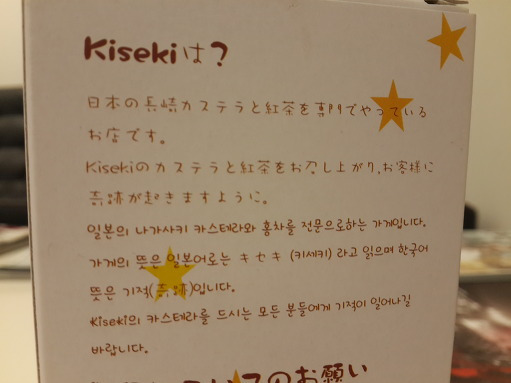 Kisekiは?
日本の長崎カステラと紅茶を専門でやっている
お店です。
Kisekiのカステラと紅茶をお召し上がり、お客様に
奇跡が起きますように。
일본의 나가사키 카스테라와 홍차를 전문으로하는 가게입니다.
가게의 뜻은 일본어로는 キセキ (키세키) 라고 읽으며 한국어
뜻은 기적(奇跡)입니다.
Kiseki의 카스테라를 드시는 모든 분들에게 기적이 일어나길
바랍니다.
のお願い